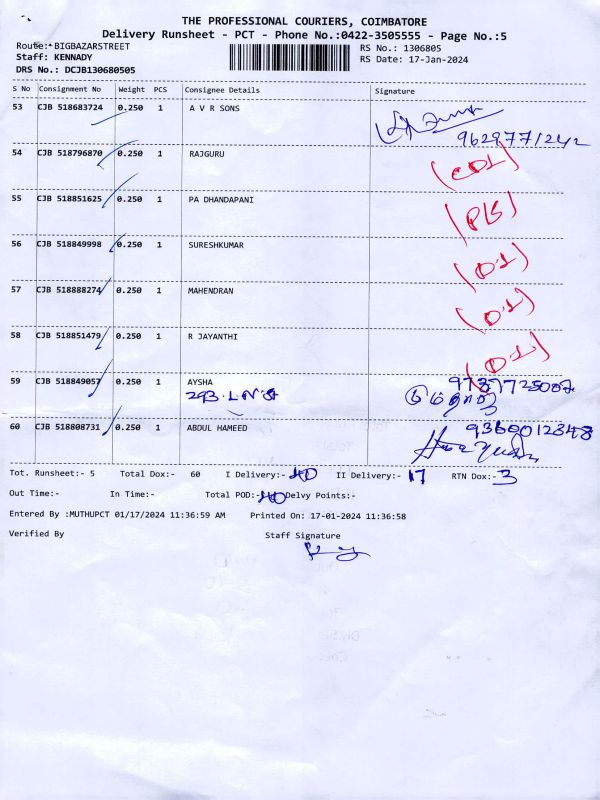 THE PROFESSIONAL COURIERS, COIMBATORE
Delivery Runsheet - PCT - Phone No.:0422-3505555 - Page No.:5
Route:- BIGBAZARSTREET RS No.: 1306805
Staff: KENNADY RS Date: 17-Jan-2024
DRS No.: DCJB130680505
S No Consignment No Weight PCS Consignee Details Signature
53 CJB 518683724 0.250 1 A V R SONS
9629771242
54 CJB 518796870 0.250 1 RAJGURU
55 CJB 518851625 0.250 1 PA DHANDAPANI
56 CJB 518849998 0.250 1 SURESHKUMAR
57 CJB 518888274 0.250 1 MAHENDRAN
58 CJB 518851479 0.250 1 R JAYANTHI
59 CJB 518849057 0.250 1 AYSHA
60 CJB 518808731 0.250 1 ABDUL HAMEED 9360012348
Tot. Runsheet:- 5 Total Dox:- 60 I Delivery:- 40 II Delivery:- 17 RTN Dox:- 3
Out Time:- In Time:- Total POD:- 40 Delvy Points:-
Entered By :MUTHUPCT 01/17/2024 11:36:59 AM Printed On: 17-01-2024 11:36:58
Verified By Staff Signature